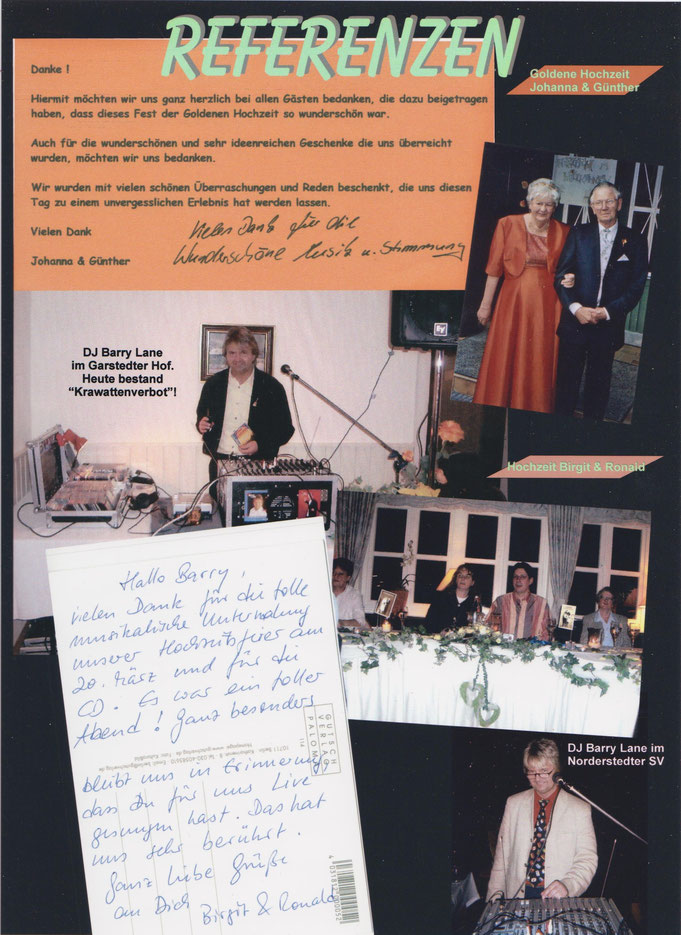 REFERENZEN
Danke !
Hiermit möchten wir uns ganz herzlich bei allen Gästen bedanken, die dazu beigetragen
haben, dass dieses Fest der Goldenen Hochzeit so wunderschön war.
Auch für die wunderschönen und sehr ideenreichen Geschenke die uns überreicht
wurden, möchten wir uns bedanken.
Wir wurden mit vielen schönen Überraschungen und Reden beschenkt, die uns diesen
Tag zu einem unvergesslichen Erlebnis hat werden lassen.
Vielen Dank
Johanna & Günther
Vielen Dank für die
Wunderschöne Musik u. Stimmung
Goldene Hochzeit
Johanna & Günther
DJ Barry Lane
im Garstedter Hof.
Heute bestand
“Krawattenverbot”!
EV
Hochzeit Birgit & Ronald
Hallo Barry,
vielen Dank für die tolle
musikalische Untermalung
unserer Hochzeitsfeier am
20. März und für die
CD. Es war ein toller
Abend! Ganz besonders
bleibt uns in Erinnerung
dass Du für uns Live
gesungen hast. Das hat
uns sehr berührt.
Ganz liebe Grüße
an Dich
Birgit & Ronald
GUTSCH
VERLAG
PALOMA
DJ Barry Lane im
Norderstedter SV